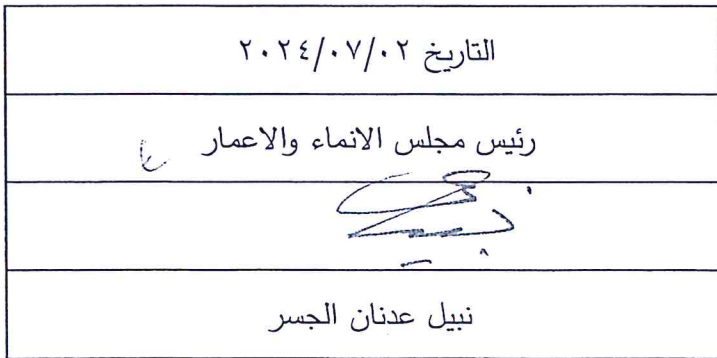 التاريخ ٢٠٢٤/٠٧/٠٢
رئيس مجلس الانماء والاعمار
نبيل عدنان الجسر